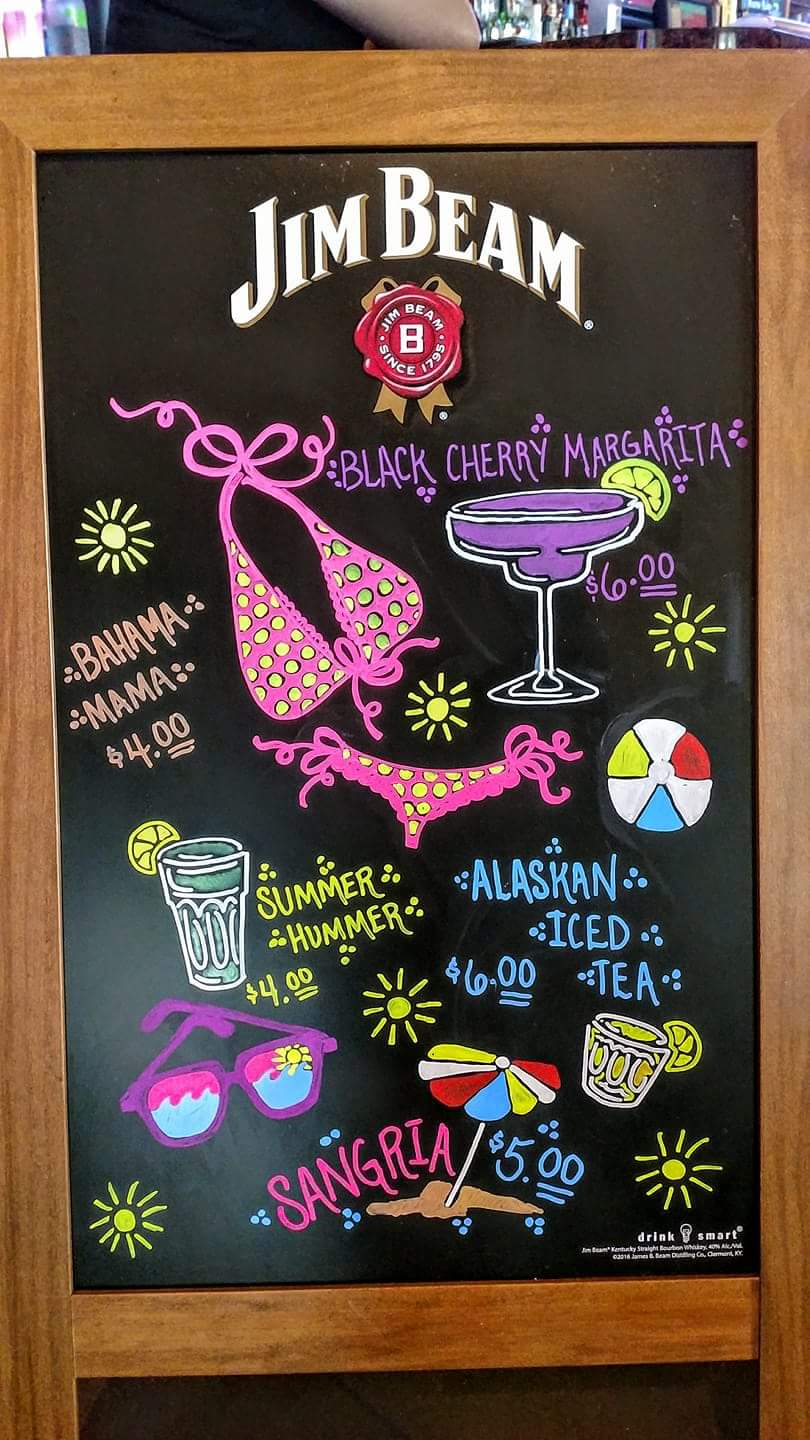 JIM BEAM®
JIM BEAM
B
SINCE 1795
®
BLACK CHERRY MARGARITA
$6.00
BAHAMA
MAMA
$4.00
SUMMER
HUMMER
$4.00
ALASKAN
ICED
TEA
$6.00
SANGRIA
$5.00
drink smart®
Jim Beam® Kentucky Straight Bourbon Whiskey, 40% Alc./Vol.
©2016 James B. Beam Distilling Co., Clermont, KY.